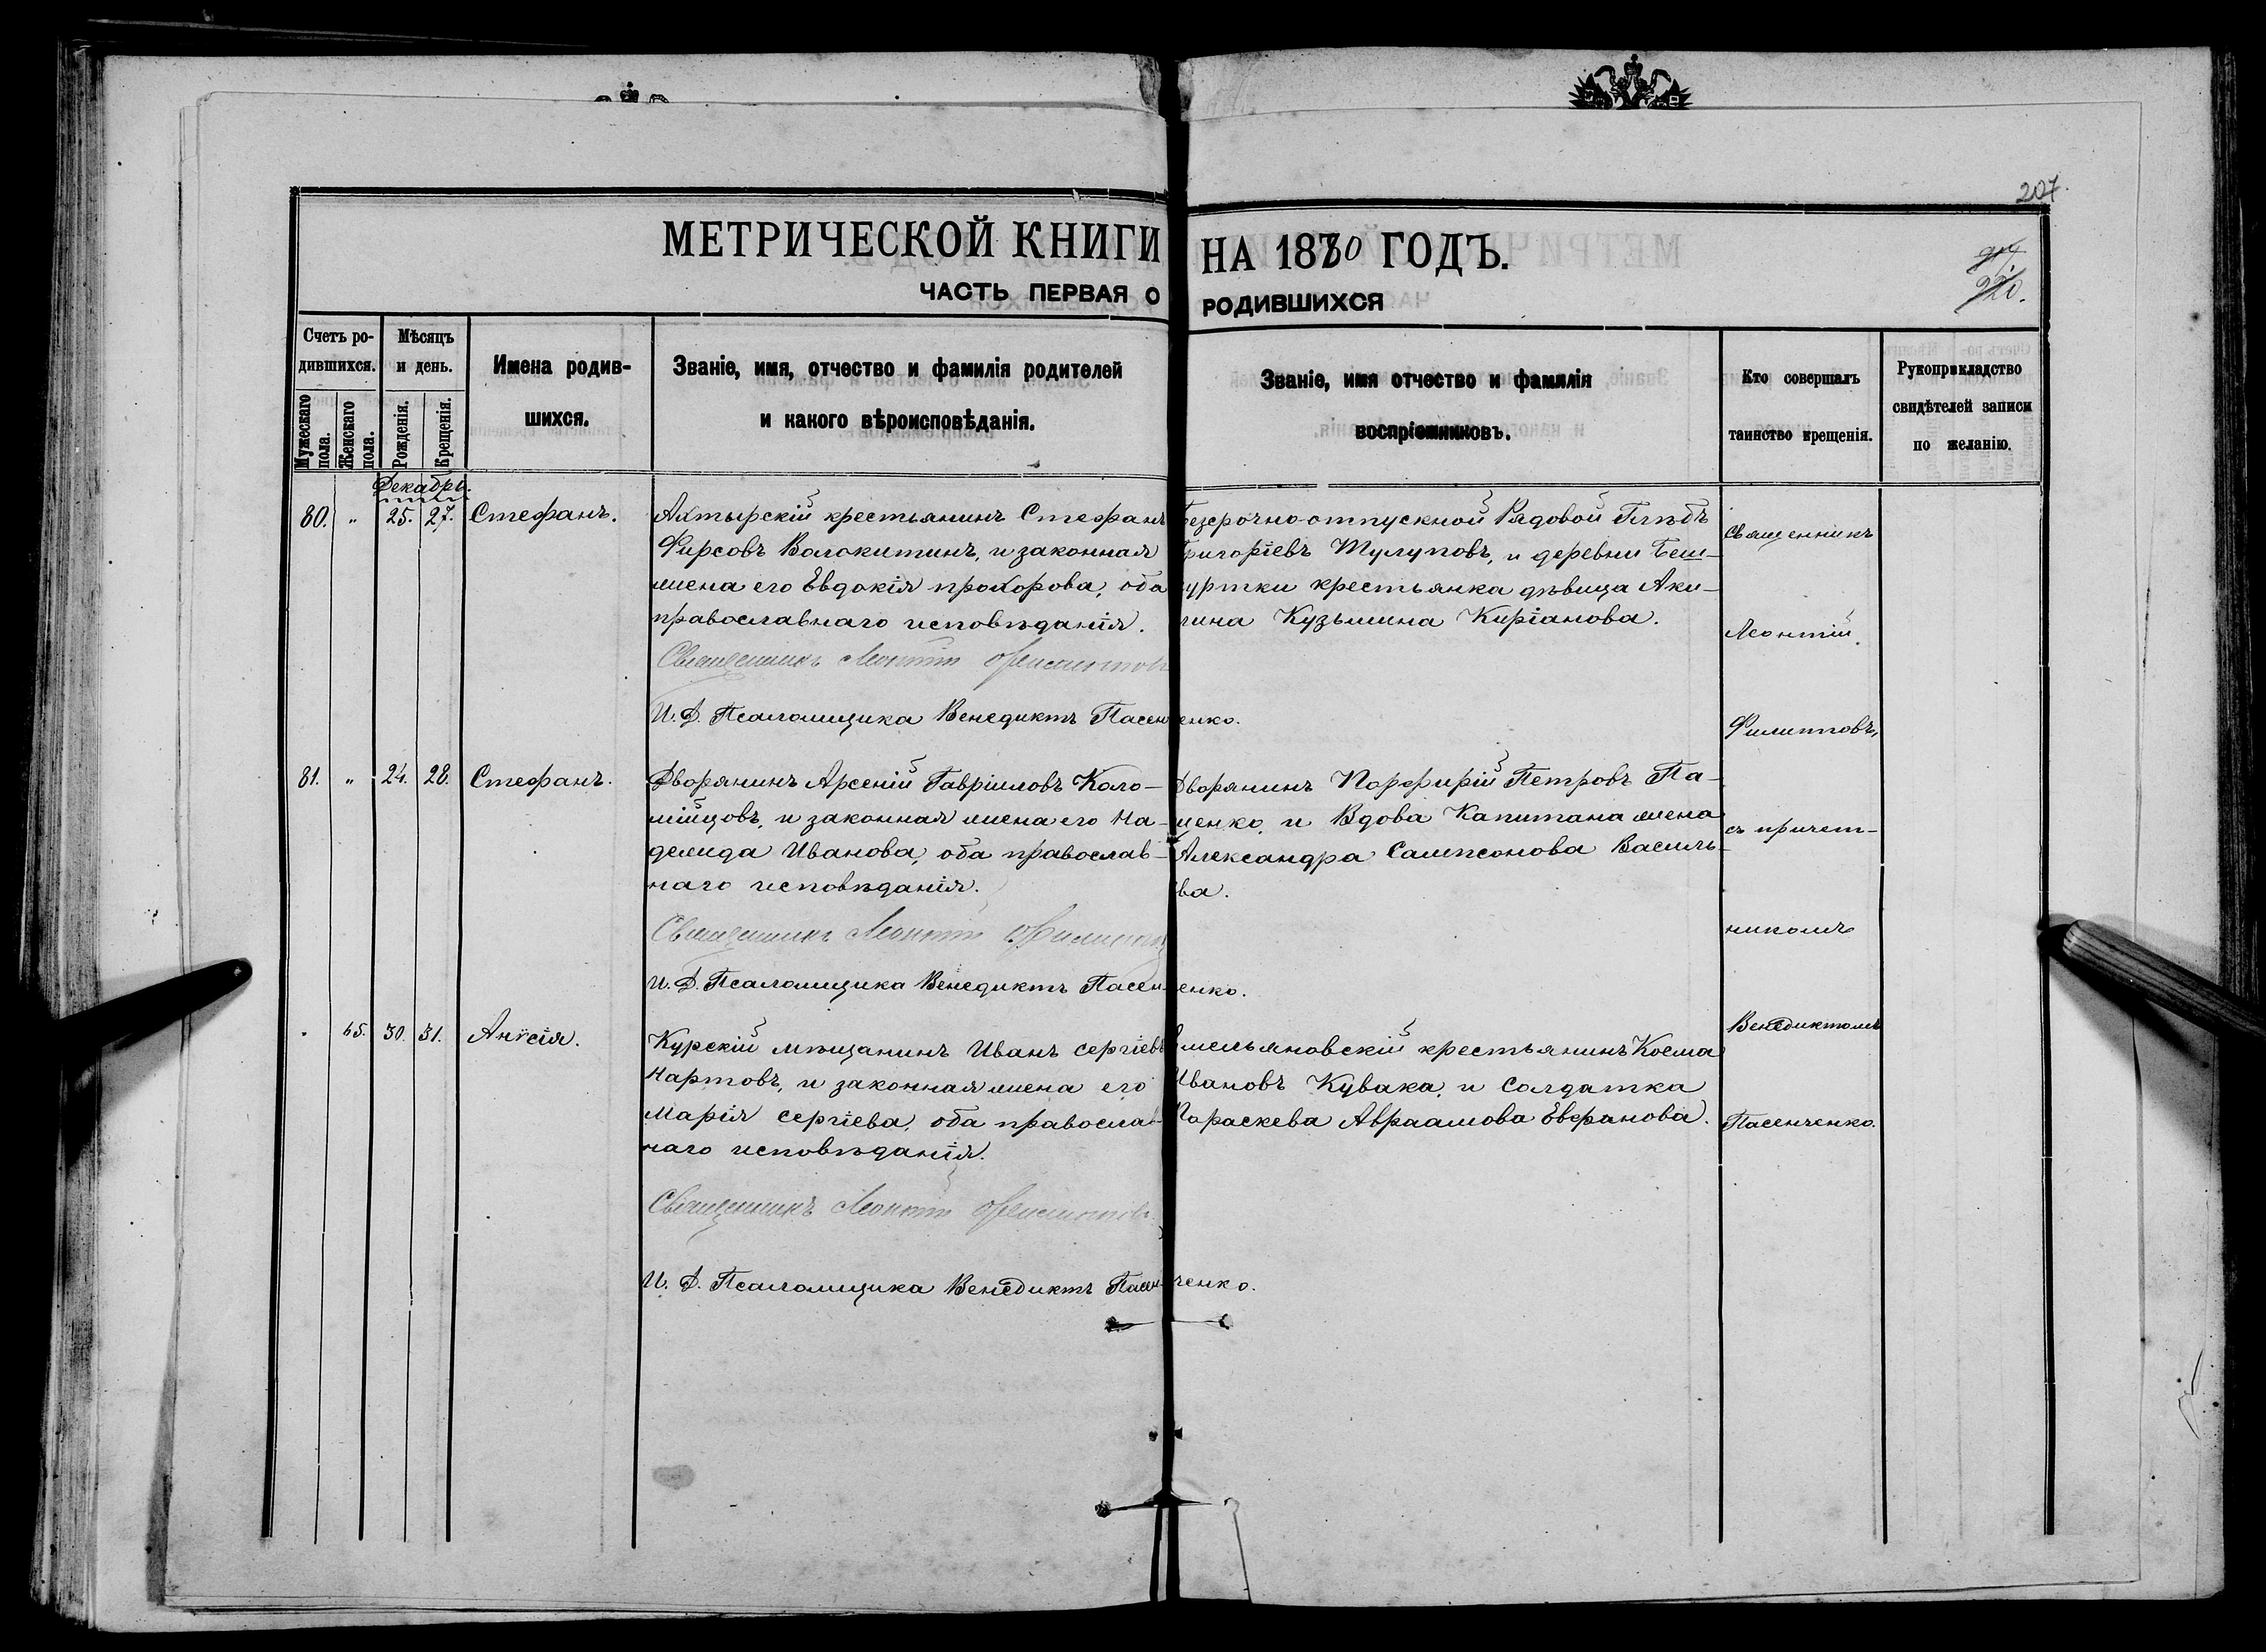 207.
МЕТРИЧЕСКОЙ КНИГИ НА 1880 ГОДЪ.
ЧАСТЬ ПЕРВАЯ О РОДИВШИХСЯ
Счетъ ро-
дившихся.
Мужескаго пола.
Женскаго пола.
Мѣсяцъ
и день.
Рожденія.
Крещенія.
Имена родив-
шихся.
Званіе, имя, отчество и фамилія родителей
и какого вѣроисповѣданія.
Званіе, имя отчество и фамилія
воспріемниковъ.
Кто совершалъ
таинство крещенія.
Рукоприкладство
свидѣтелей записи
по желанію.
Декабрь.
80. " 25. 27. Стефанъ.
Ахтырскій крестьянинъ Стефанъ
Фирсовъ Волокитинъ, и законная
жена его Евдокія прохорова, оба
православнаго исповѣданія.
Священникъ Леонтій Филиппов
И. Д. Псаломщика Венедиктъ Пасенченко.
Безсрочно-отпускной Рядовой Глѣбъ
Григоріевъ Тулуповъ, и деревни Беш-
куртки крестьянка дѣвица Аки-
лина Кузьмина Киріанова.
81. " 24. 28. Стефанъ.
Дворянинъ Арсеній Гавріиловъ Коло-
мійцовъ, и законная жена его На-
дежда Иванова, оба православ-
наго исповѣданія.
Священникъ Леонтій Филиппов
И. Д. Псаломщика Венедиктъ Пасенченко.
Дворянинъ Порфирій Петровъ Па-
щенко, и Вдова Капитана жена
Александра Сампсонова Василь-
ева.
" 65. 30. 31. Анѵсія.
Курскій мѣщанинъ Иванъ сергіевъ
Нартовъ, и законная жена его
Марія сергіева, оба православ-
наго исповѣданія.
Священникъ Леонтій Филипповъ.
И. Д. Псаломщика Венедиктъ Пасенченко.
Емельяновскій крестьянинъ Косма
Ивановъ Кувака, и солдатка
Параскева Авраамова Евфанова.
Священникъ
Леонтій
Филипповъ,
съ причет-
никомъ
Венедиктомъ
Пасенченко.